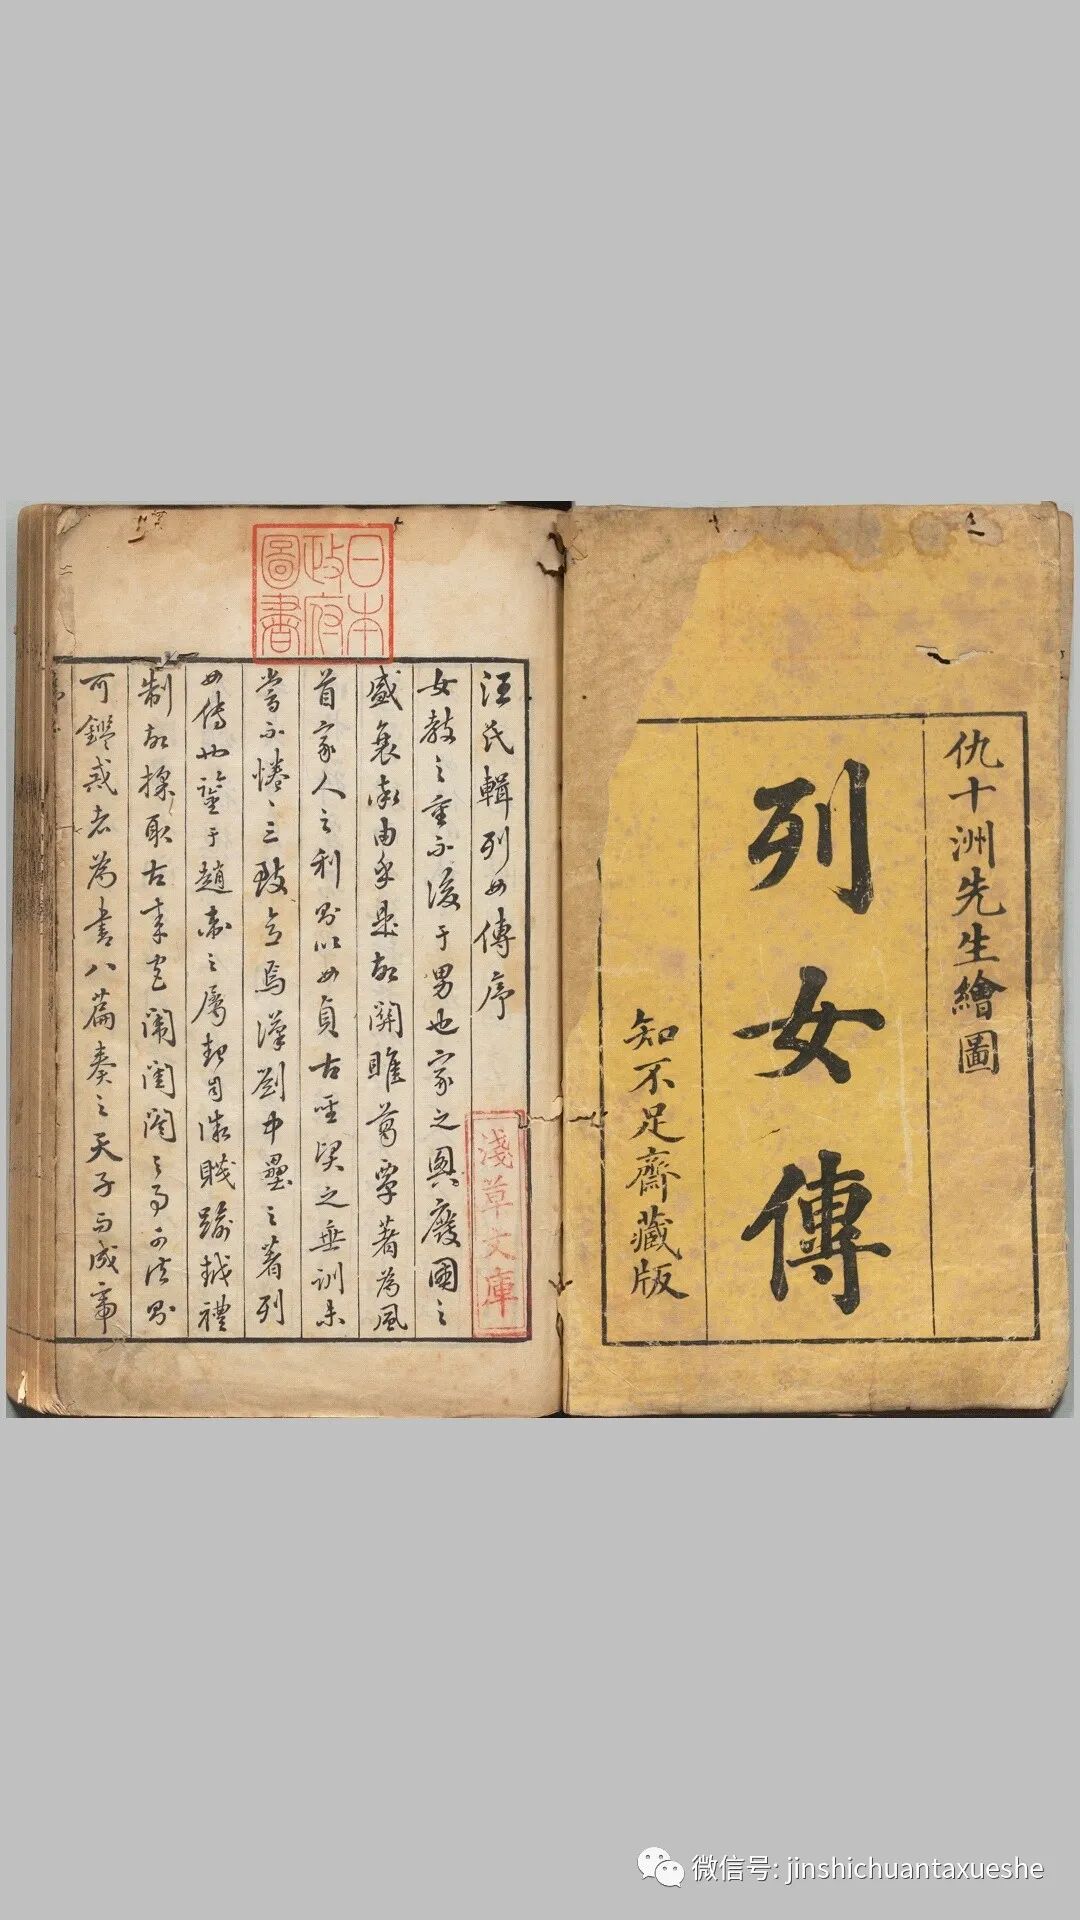 仇十洲先生繪圖
列女傳
知不足齋藏版
日本
政府
圖書
淺草文庫
汪氏輯列女傳序
女教之重不後于男也家之興廢國之
盛衰率由乎是故關雎葛覃著為風
首家人之利則以女貞古聖賢之垂訓未
嘗不惓之三致意焉漢劉中壘之著列
女傳也鑒于趙衛之屬起自微賤踰越禮
制故採取古來宮闈閨閣之事可法則
可鑑戒者為書八篇奏之天子而成帝
微信号: jinshichuantaxueshe